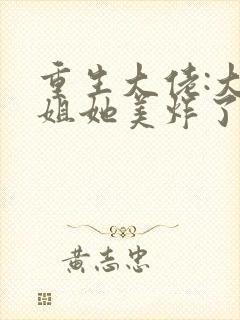 重生大佬:大
姐她美炸了
黄志忠